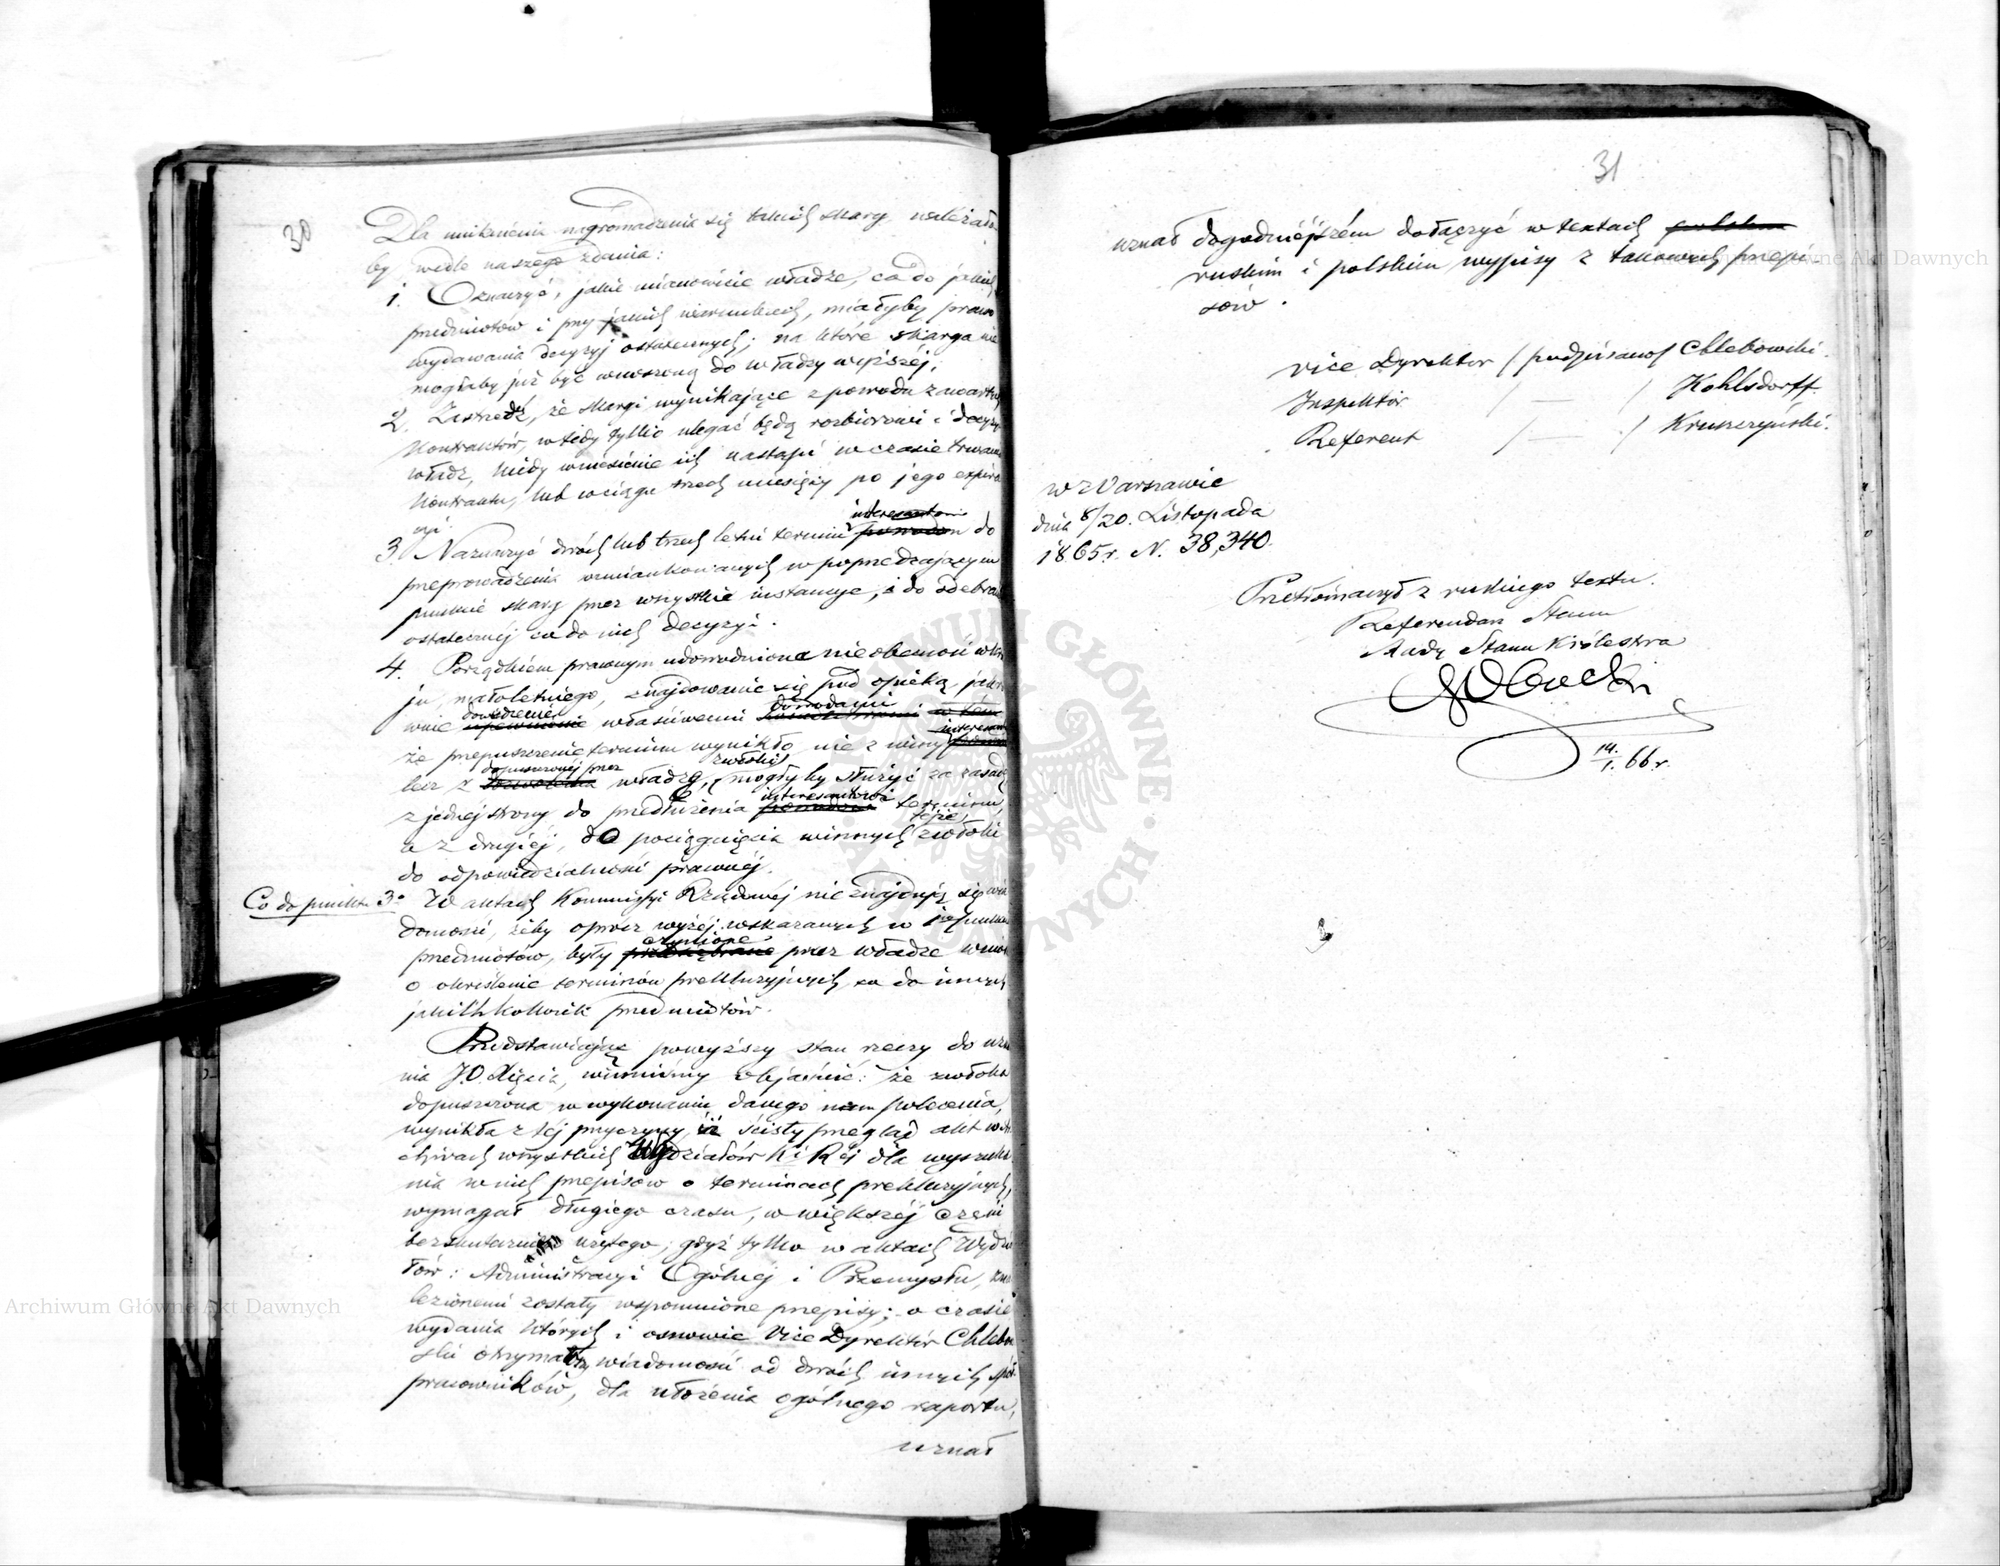 30
Dla uniknienia nagromadzenia się takich skarg, należało
by wedle naszego zdania:
1. Oznaczyć, jakie mianowicie władze, co do jakich
przedmiotów i przy jakich warunkach, miałyby prawo
wydawania decyzyj ostatecznych; na które skarga nie
mogłaby już być wnoszoną do władzy wyższéj;
2. Zastrzedz, że skargi wynikające z powodu zawartych
Kontraktów, wtédy tylko ulegać będą rozbiorowi i decyzyi
władz, kiedy wniesienie ich nastąpi w czasie trwania
Kontraktu, lub w ciągu trzech miesięcy po jego expira
cyi.
interesantom
3. Naznaczyć dwóch lub trzech letni termin powodom do
przeprowadzenia wzmiankowanych w poprzedzającym
punkcie skarg przez wszystkie instancye, i do odebrania
ostatecznéj co do nich decyzyi.
4. Porządkiem prawnym udowodniona nieobecność w kra
ju, małoletniego, znajdowanie się pod opieką, jako
dowiedzenie dowodami
wnie upewnienie właściwemi w tém
interesanta
że przepuszczenie terminu wynikło nie z winy
dopuszczonéj przez zwłoki
lecz z władzę, mogłyby służyć za zasadę
interesantowi
z jednéj strony do przedłużenia terminu,
tejże
a z drugiéj, do pociągnięcia winnych zwłoki
do odpowiedzialności prawnéj.
Co do punktu 3o W aktach Kommissyi Rządowéj nie znajdują się wia
domości, żeby oprócz wyżéj wskazanych w 1m punkcie
czynione
przedmiotów, były przez władze wnioski
o określenie terminów prekluzyjnych co do innych
jakichkolwiek przedmiotów.
Przedstawiając powyższy stan rzeczy do uzna
nia J.O. Xięcia, winniśmy objaśnić: że zwłoka
dopuszczona w wykonaniu danego nam polecenia,
wynikła z téj przyczyny, iż ścisły przegląd akt w Ar
chiwach wszystkich Wydziałów K i Réj dla wyszuka
nia w nich przepisów o terminach prekluzyjnych,
wymagał długiego czasu, w większéj części
bezskutecznie użytego, gdyż tylko w aktach Wydzia
łów: Administracyi Ogólnéj i Przemysłu, zna
lezionemi zostały wspomnione przepisy; o czasie
wydania których i osnowie Vice Dyrektor Chlebow
ski otrzymał wiadomość od dwóch innych współ
pracowników, dla ułożenia ogólnego raportu,
uznał
31
uznał dogodniéjszém dołączyć w textach polskim
ruskim i polskim wypisy z takowych przepi-
sów.
Vice Dyrektor /podpisano/ Chlebowski.
Inspektór / — / Kohlsdorff
Referent / — / Kruszyński.
w Warszawie
dnia 8/20. Listopada
1865r. N. 38,340.
Przetłómaczył z ruskiego textu.
Referendarz Stanu
Rady Stanu Królestwa
14./1. 66 r.
Archiwum Główne Akt Dawnych
Archiwum Główne Akt Dawnych
ARCHIWUM GŁÓWNE AKT DAWNYCH